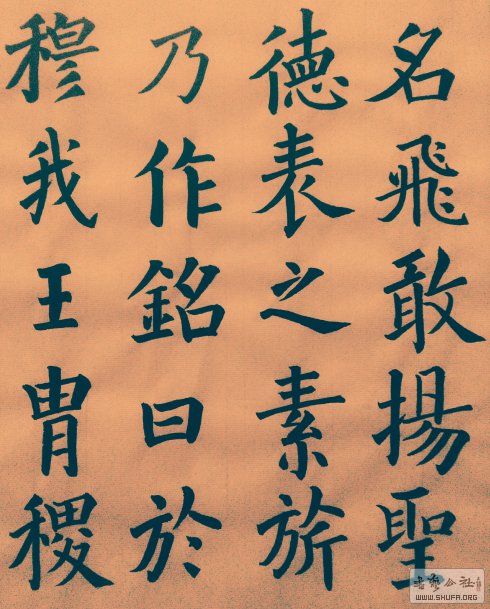 名飛敢揚聖
德表之素旂
乃作銘曰於
穆我王胄稷
书艺公社
WWW.SHUFA.ORG